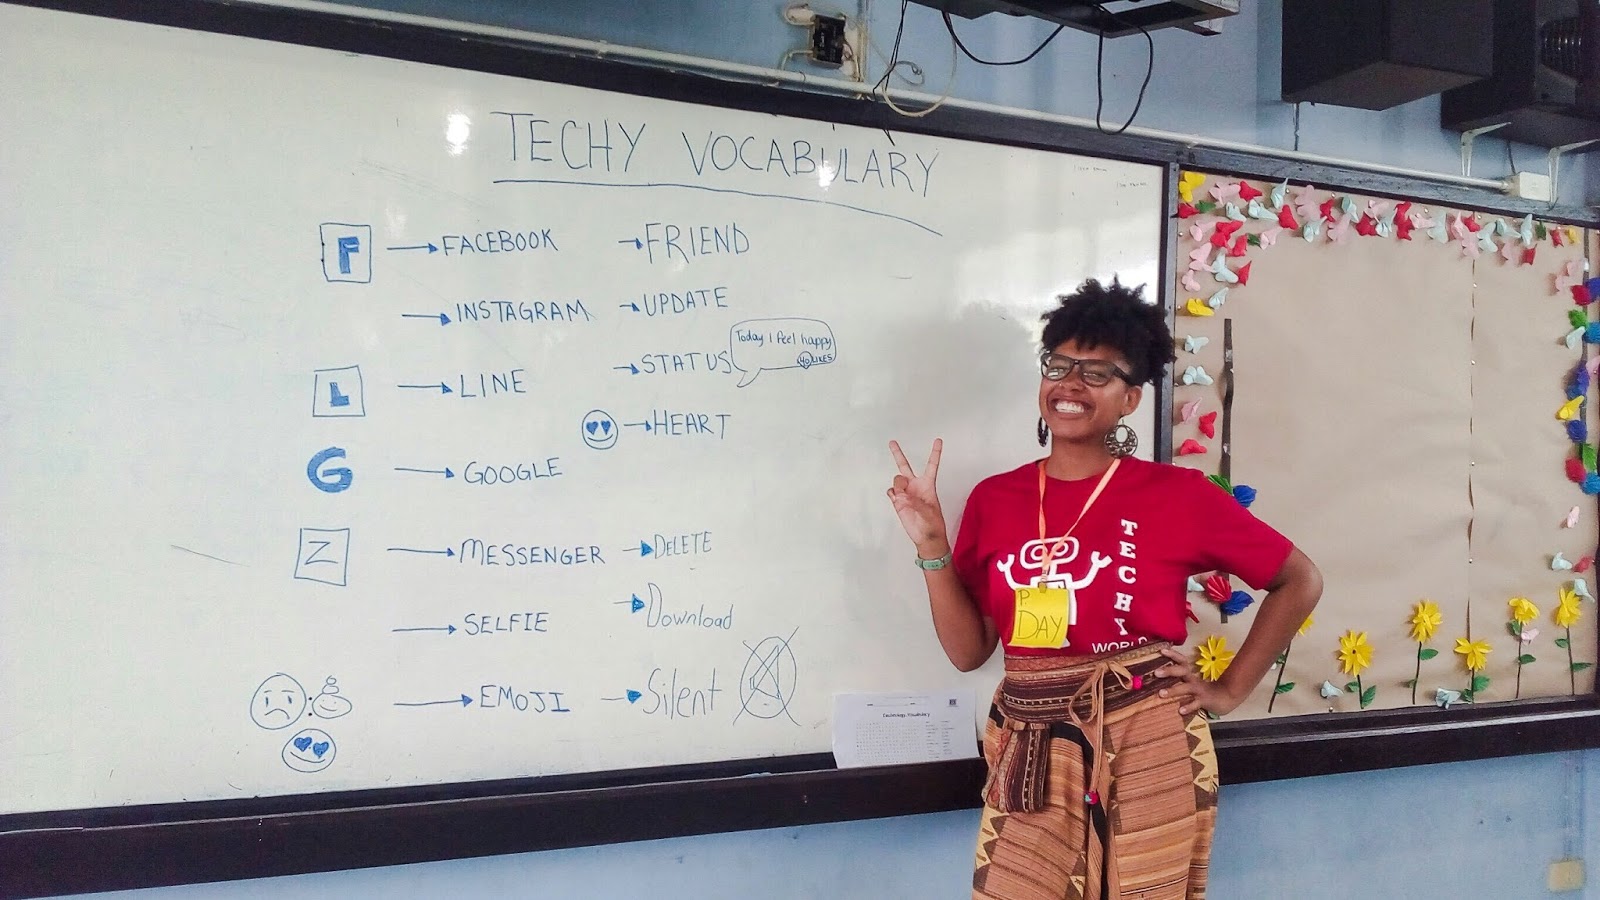 TECHY VOCABULARY
F → FACEBOOK → FRIEND
→ INSTAGRAM → UPDATE
→ STATUS Today I feel happy
40 LIKES
L → LINE
→ HEART
G → GOOGLE
Z → MESSENGER → DELETE
→ Download
→ SELFIE
→ EMOJI → Silent
Technology Vocabulary
TECHY
WORLD
P.
DAY